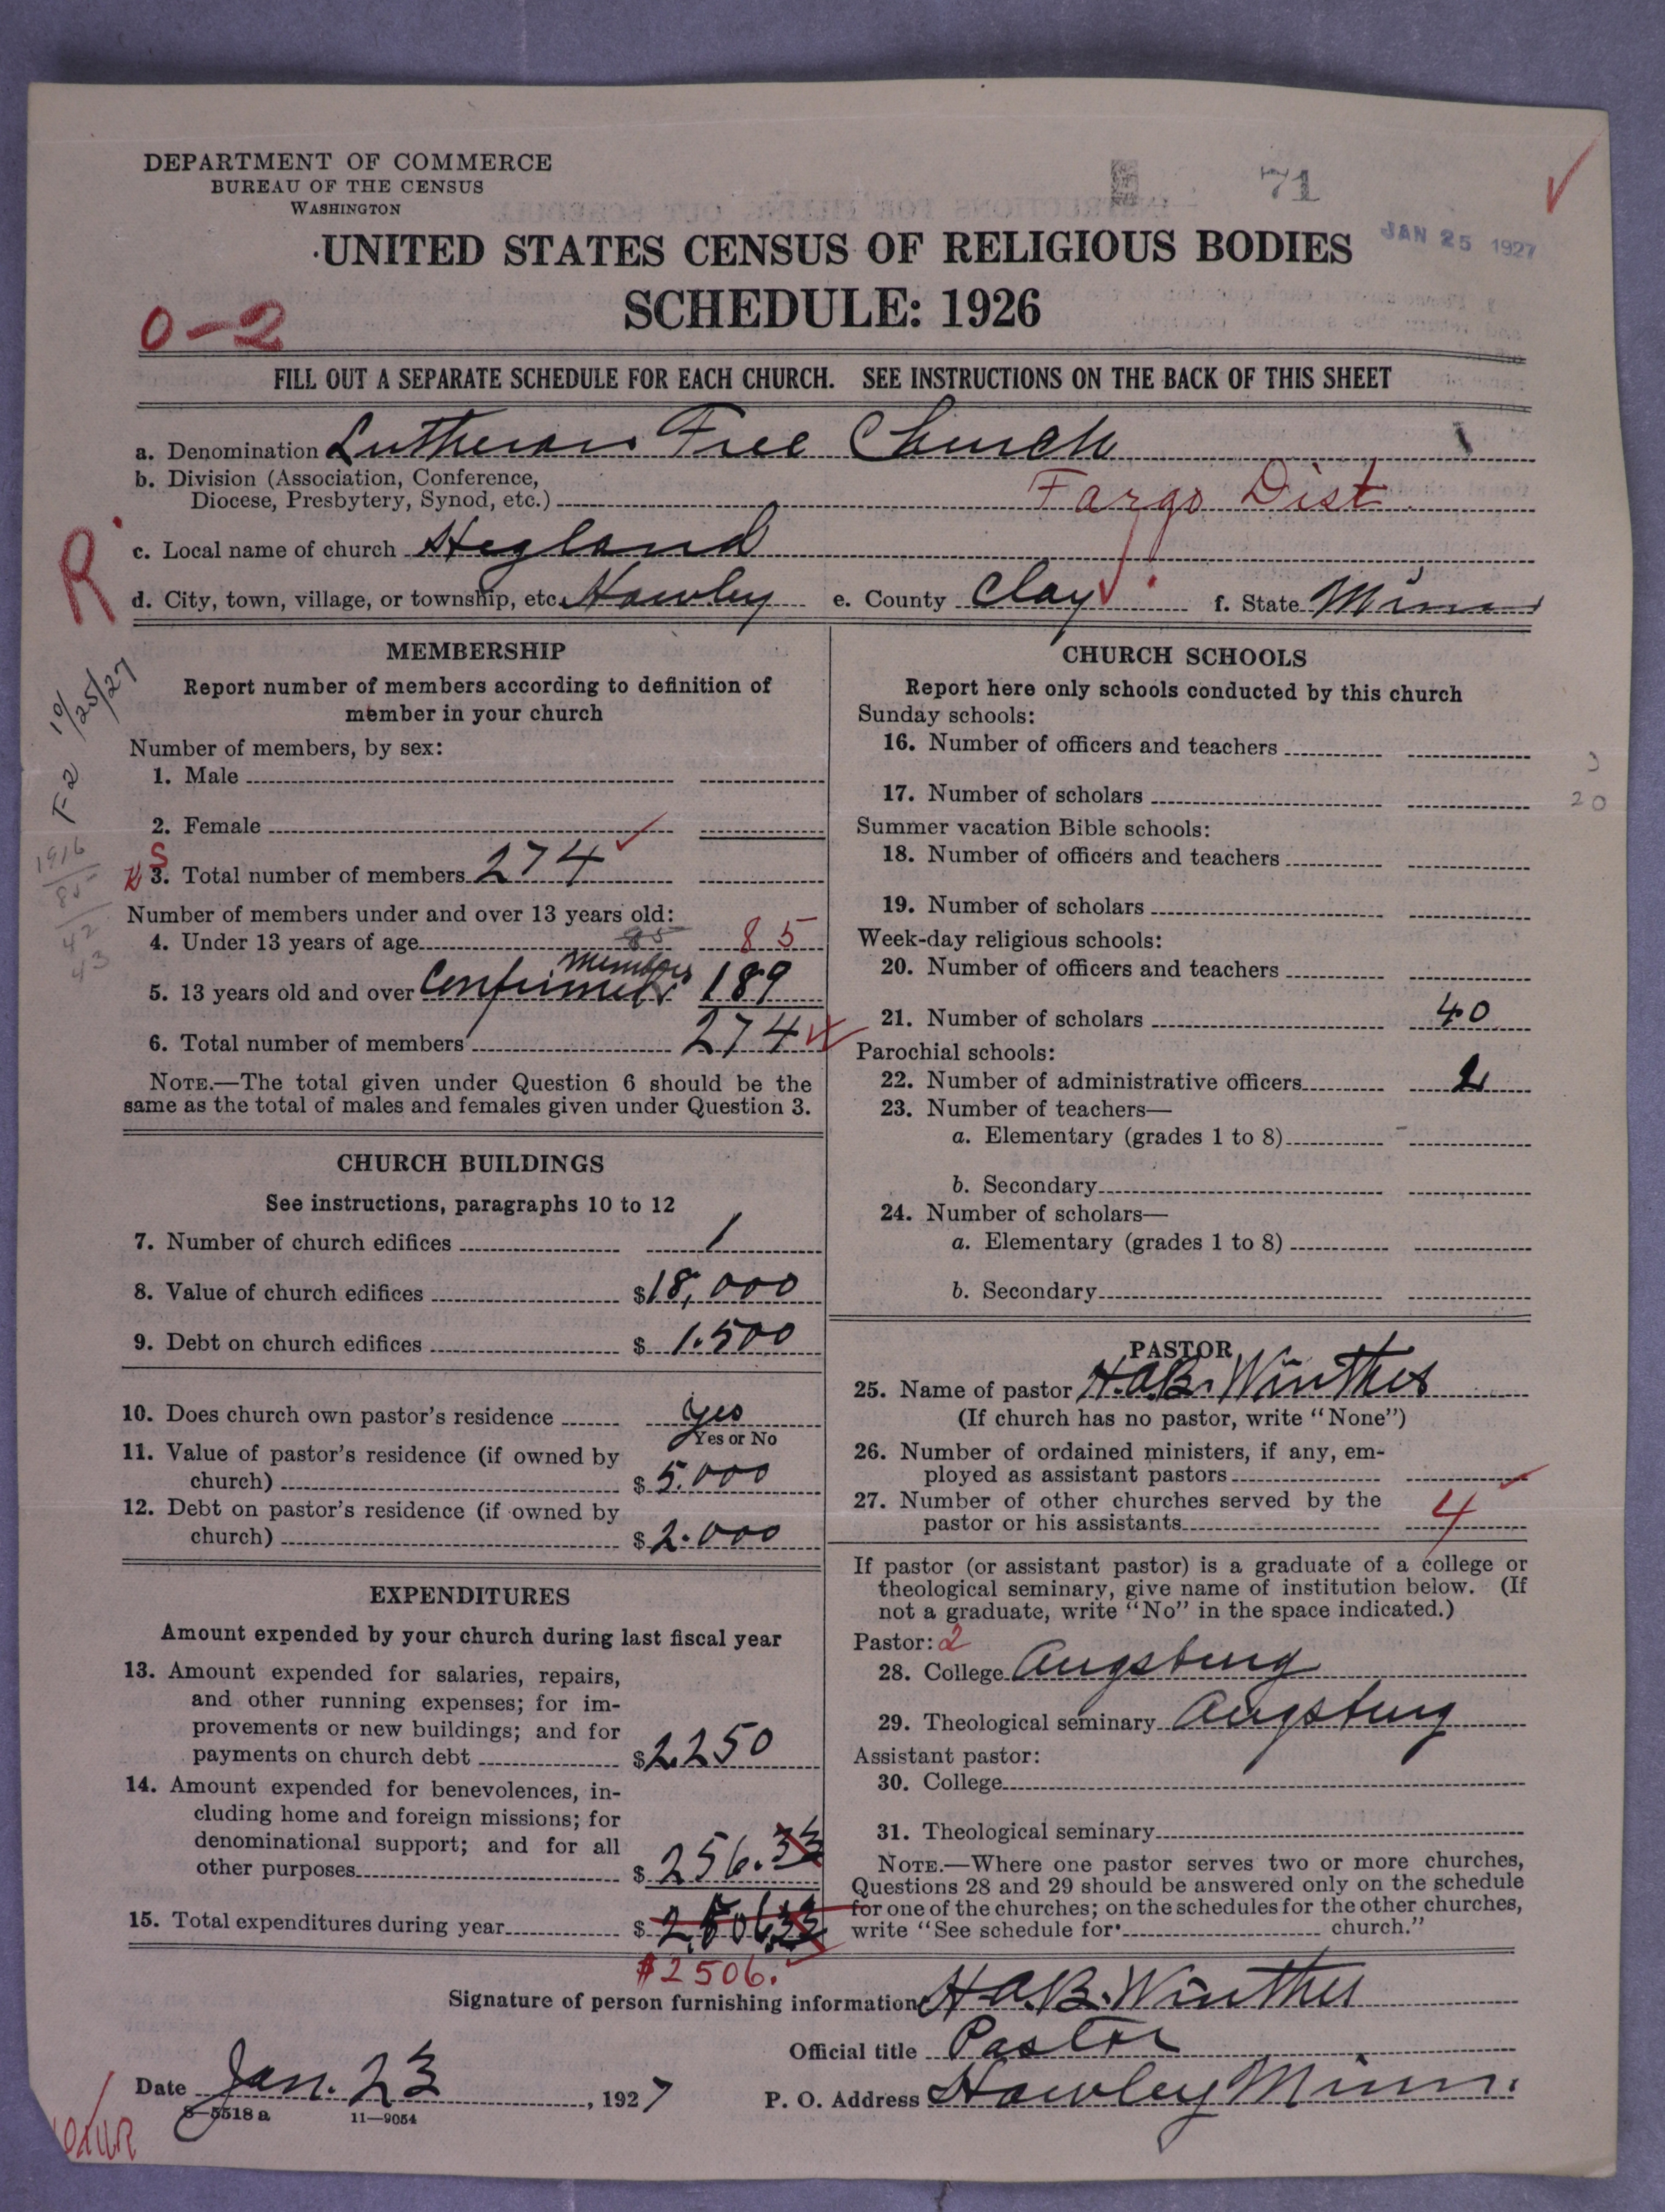 DEPARTMENT OF COMMERCE
BUREAU OF THE CENSUS
WASHINGTON
71
JAN 25 1927
UNITED STATES CENSUS OF RELIGIOUS BODIES
SCHEDULE: 1926
0-2
FILL OUT A SEPARATE SCHEDULE FOR EACH CHURCH. SEE INSTRUCTIONS ON THE BACK OF THIS SHEET
a. Denomination Lutheran Free Church
b. Division (Association, Conference,
Diocese, Presbytery, Synod, etc.) Fargo Dist.
R
c. Local name of church Hegland
d. City, town, village, or township, etc. Hawley e. County Clay f. State Minn
MEMBERSHIP
Report number of members according to definition of
member in your church
10/25/27
F2
Number of members, by sex:
1. Male
2. Female
1916
85
42
43
S
3. Total number of members 274
Number of members under and over 13 years old:
4. Under 13 years of age 85 85
5. 13 years old and over Confirmed members 189
6. Total number of members 274
NOTE.—The total given under Question 6 should be the
same as the total of males and females given under Question 3.
CHURCH BUILDINGS
See instructions, paragraphs 10 to 12
7. Number of church edifices 1
8. Value of church edifices $18,000
9. Debt on church edifices $1.500
10. Does church own pastor's residence yes
Yes or No
11. Value of pastor's residence (if owned by
church) $5.000
12. Debt on pastor's residence (if owned by
church) $2.000
EXPENDITURES
Amount expended by your church during last fiscal year
13. Amount expended for salaries, repairs,
and other running expenses; for im-
provements or new buildings; and for
payments on church debt $2.250
14. Amount expended for benevolences, in-
cluding home and foreign missions; for
denominational support; and for all
other purposes $256.33
15. Total expenditures during year $2.506.33
$2506.
CHURCH SCHOOLS
Report here only schools conducted by this church
Sunday schools:
16. Number of officers and teachers
3
17. Number of scholars
20
Summer vacation Bible schools:
18. Number of officers and teachers
19. Number of scholars
Week-day religious schools:
20. Number of officers and teachers
21. Number of scholars 40
Parochial schools:
22. Number of administrative officers
23. Number of teachers—
a. Elementary (grades 1 to 8)
b. Secondary
24. Number of scholars—
a. Elementary (grades 1 to 8)
b. Secondary
PASTOR
25. Name of pastor H.A.B. Winther
(If church has no pastor, write "None")
26. Number of ordained ministers, if any, em-
ployed as assistant pastors
27. Number of other churches served by the
pastor or his assistants 4
If pastor (or assistant pastor) is a graduate of a college or
theological seminary, give name of institution below. (If
not a graduate, write "No" in the space indicated.)
Pastor: 2
28. College Augsburg
29. Theological seminary Augsburg
Assistant pastor:
30. College
31. Theological seminary
NOTE.—Where one pastor serves two or more churches,
Questions 28 and 29 should be answered only on the schedule
for one of the churches; on the schedules for the other churches,
write "See schedule for church."
Signature of person furnishing information H.A.B. Winther
Official title Pastor
Date Jan. 23, 1927 P. O. Address Hawley Minn.
8—5518 a 11—9054